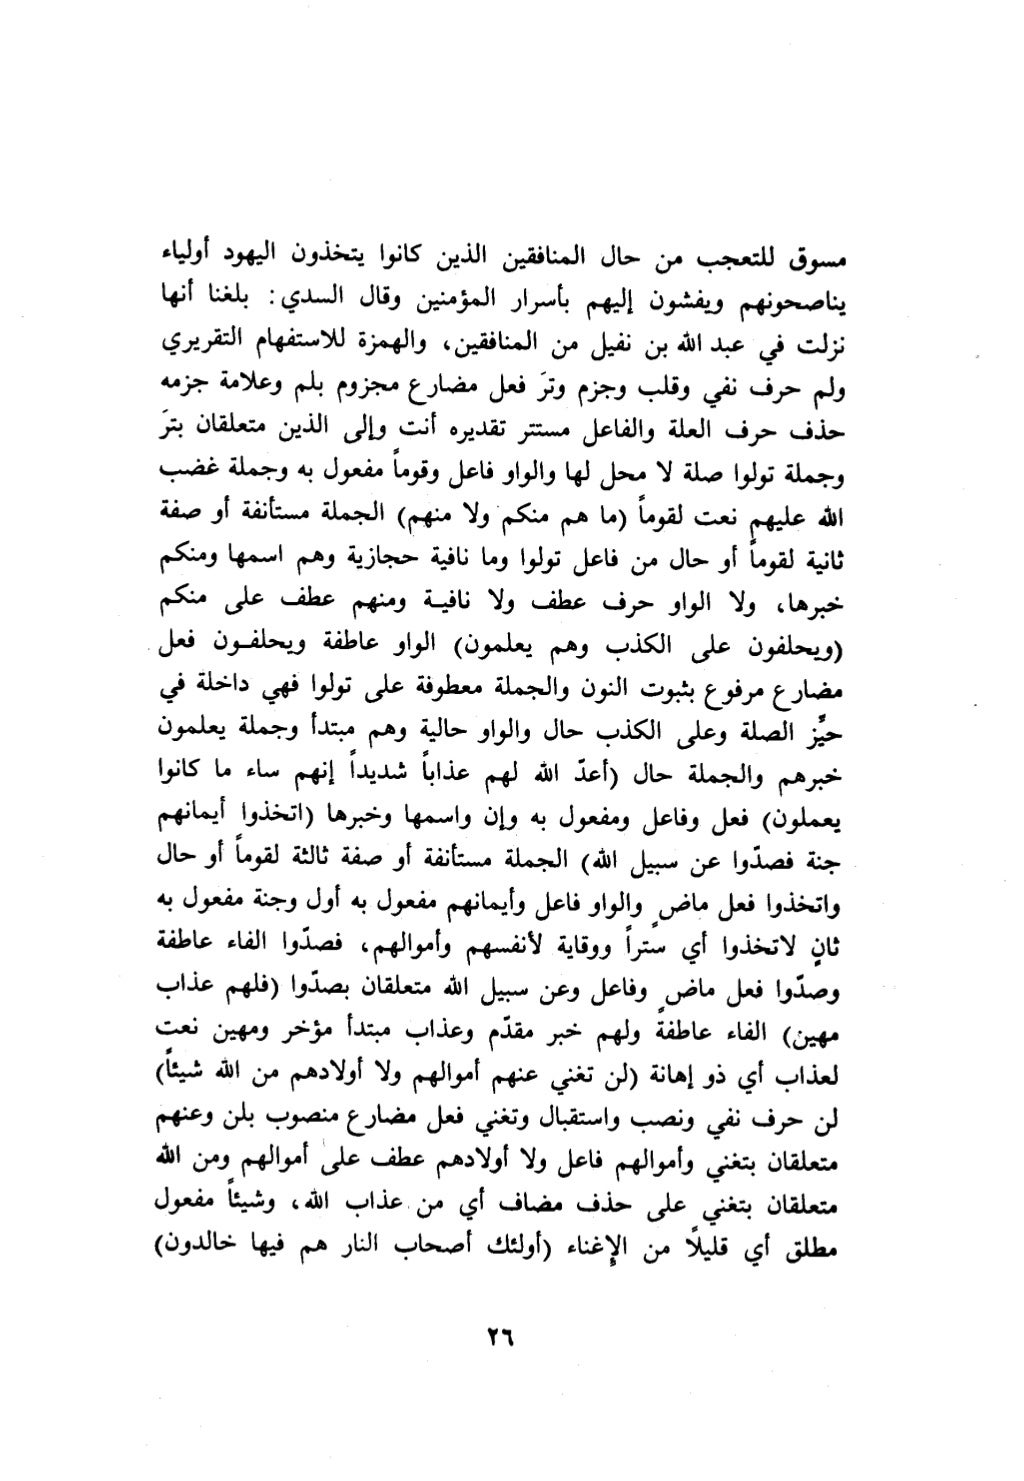 مسوق للتعجب من حال المنافقين الذين كانوا يتخذون اليهود أولياء
يناصحونهم ويفشون إليهم بأسرار المؤمنين وقال السدي: بلغنا أنها
نزلت في عبد الله بن نفيل من المنافقين، والهمزة للاستفهام التقريري
ولم حرف نفي وقلب وجزم وترَ فعل مضارع مجزوم بلم وعلامة جزمه
حذف حرف العلة والفاعل مستتر تقديره أنت وإلى الذين متعلقان بترَ
وجملة تولوا صلة لا محل لها والواو فاعل وقوماً مفعول به وجملة غضب
الله عليهم نعت لقوماً (ما هم منكم ولا منهم) الجملة مستأنفة أو صفة
ثانية لقوماً أو حال من فاعل تولوا وما نافية حجازية وهم اسمها ومنكم
خبرها، ولا الواو حرف عطف ولا نافيـة ومنهم عطف على منكم
(ويحلفون على الكذب وهم يعلمون) الواو عاطفة ويحلفـون فعل
مضارع مرفوع بثبوت النون والجملة معطوفة على تولوا فهي داخلة في
حيِّز الصلة وعلى الكذب حال والواو حالية وهم مبتدأ وجملة يعلمون
خبرهم والجملة حال (أعدّ الله لهم عذاباً شديداً إنهم ساء ما كانوا
يعملون) فعل وفاعل ومفعول به وإن واسمها وخبرها (اتخذوا أيمانهم
جنة فصدّوا عن سبيل الله) الجملة مستأنفة أو صفة ثالثة لقوماً أو حال
واتخذوا فعل ماضٍ والواو فاعل وأيمانهم مفعول به أول وجنة مفعول به
ثانٍ لاتخذوا أي ستراً ووقاية لأنفسهم وأموالهم، فصدّوا الفاء عاطفة
وصدّوا فعل ماضٍ وفاعل وعن سبيل الله متعلقان بصدّوا (فلهم عذاب
مهين) الفاء عاطفة ولهم خبر مقدّم وعذاب مبتدأ مؤخر ومهين نعت
لعذاب أي ذو إهانة (لن تغني عنهم أموالهم ولا أولادهم من الله شيئاً)
لن حرف نفي ونصب واستقبال وتغني فعل مضارع منصوب بلن وعنهم
متعلقان بتغني وأموالهم فاعل ولا أولادهم عطف على أموالهم ومن الله
متعلقان بتغني على حذف مضاف أي من عذاب الله، وشيئاً مفعول
مطلق أي قليلاً من الإغناء (أولئك أصحاب النار هم فيها خالدون)
٢٦